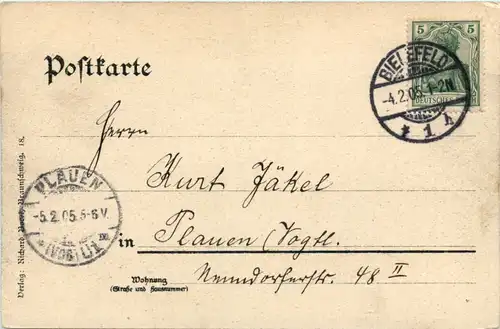 Postkarte
5 5
DEUTSCHES
BIELEFELD
-4.2.05. 1-2N
* 1 h
Herrn
Kurt Jäkel
in Plauen (Vogtl.
48 II
Wohnung
(Straße und Hausnummer)
PLAUEN
-5.2.05. 5-6 V.
* (VOGTL.) 1
Verlag: Richard Braunschweig. 18.